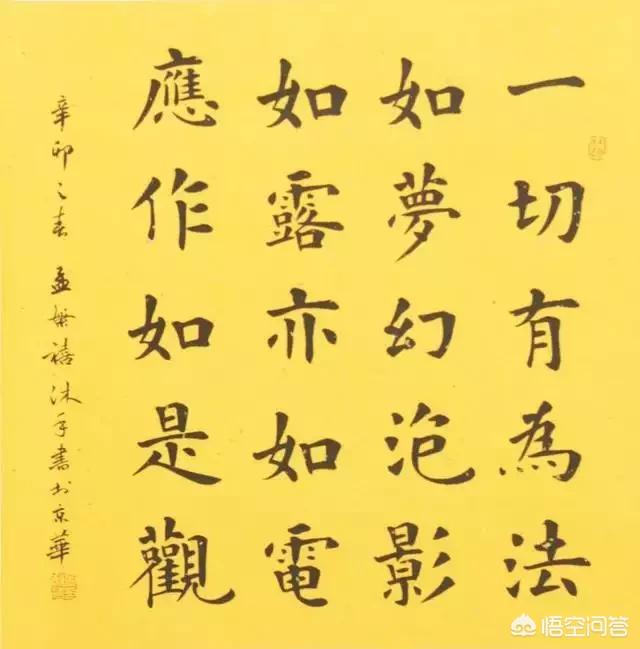 一切有為法
如夢幻泡影
如露亦如電
應作如是觀
辛卯之春 孟繁禧沐手書於京華
悟空问答